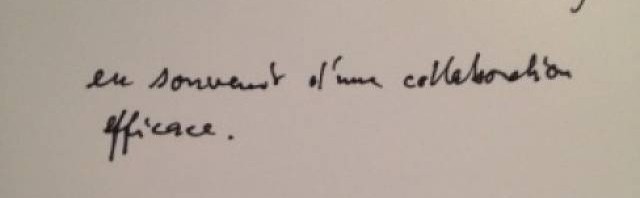 en souvenir d'une collaboration
efficace.